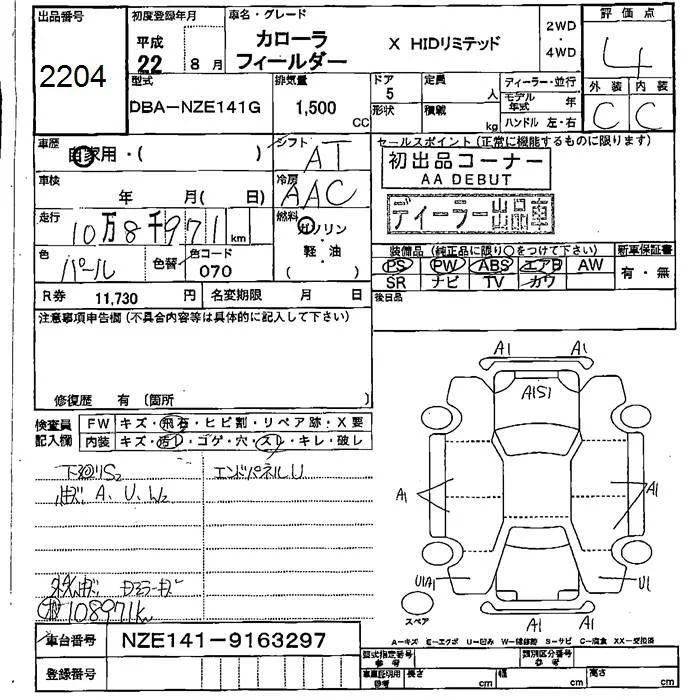 出品番号 初度登録年月 車名・グレード 評価点
2204
平成 22 8月
カローラ X HIDリミテッド
フィールダー
2WD・4WD
4
型式 排気量 ドア 定員 ディーラー・並行 外装 内装
DBA-NZE141G 1,500 CC 5 人 モデル年式 年 C C
形状 積載 kg ハンドル 左・右
車歴 自家用・( ) シフト AT
セールスポイント(正常に機能するものに限ります)
初出品コーナー
AA DEBUT
車検 年 月( 日) 冷房 AAC
ディーラー出品車
走行 10万8千971km 燃料 ガソリン
軽・油
( )
色 パール 色替 色コード 070
装備品(純正品に限り○をつけて下さい) 新車保証書
PS PW ABS エアB AW 有・無
SR ナビ TV カワ
R券 11,730円 名変期限 月 日
後日品
注意事項申告欄(不具合内容等は具体的に記入して下さい)
修復歴 有 〔箇所 〕
検査員記入欄 FW キズ・飛石・ヒビ割・リペア跡・X要
内装 キズ・汚レ・コゲ・穴・スレ・キレ・破レ
下回りS2 エンドパネルU
A、U、W2
108971km
A1 A1
A1S1
A1 A1
U1A1 U1
スペア
A1 A1
A-キズ E-エクボ U-凹み W-補修跡 S-サビ C-腐食 XX-交換済
車台番号 NZE141-9163297
型式指定番号 参考 類別区分番号 参考
登録番号
車庫証明用 参考 長さ cm 幅 cm 高さ cm